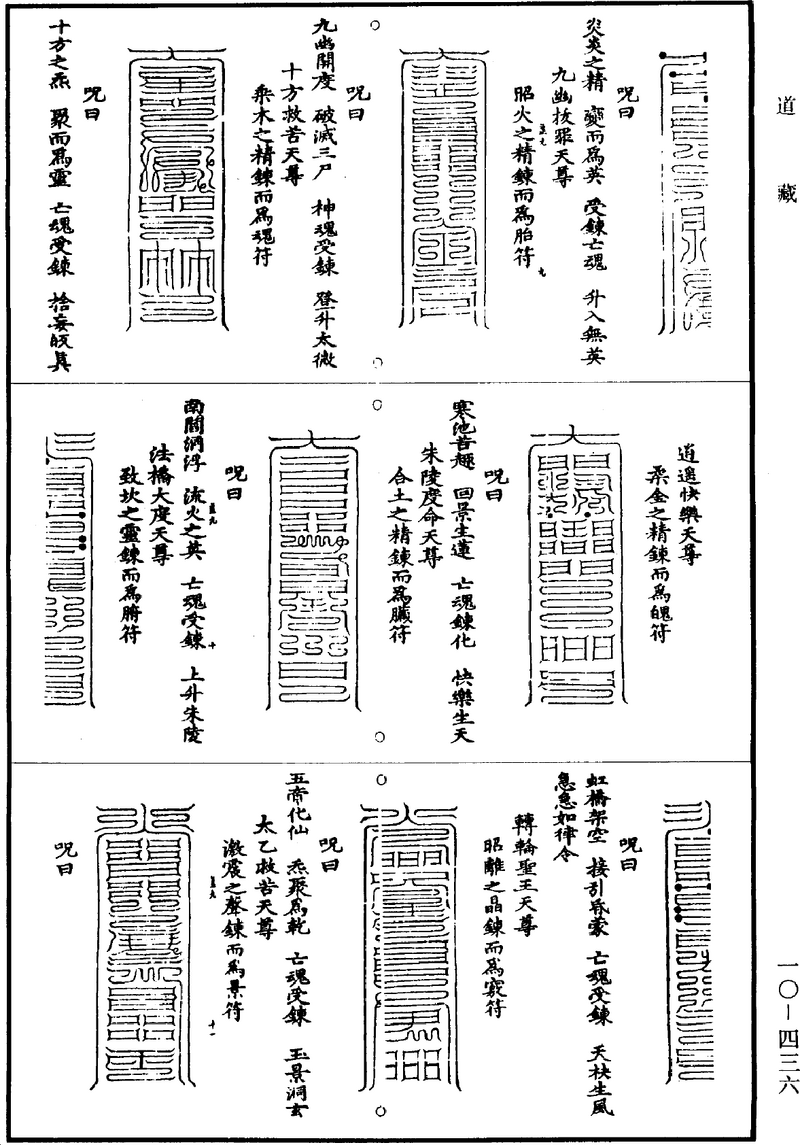 道藏
一〇－四三六
呪曰
炎炎之精　變而為英　受鍊亡魂　升入無英
九幽拔罪天尊
昭火之精鍊而為胎符
呪曰
九幽開度　破滅三尸　神魂受鍊　登升太微
十方救苦天尊
乘木之精鍊而為魂符
呪曰
十方之炁　聚而為靈　亡魂受鍊　捨妄皈真
逍遥快樂天尊
乘金之精鍊而為魄符
呪曰
寒池苦趣　回景生蓮　亡魂鍊化　快樂生天
朱陵度命天尊
合土之精鍊而為臟符
呪曰
南閞洞浮　流火之英　亡魂受鍊　上升朱陵
法橋大度天尊
致坎之靈鍊而為腑符
呪曰
虹橋架空　接引昏蒙　亡魂受鍊　天枝生風
急急如律令
轉輪聖王天尊
昭離之晶鍊而為竅符
呪曰
五帝化仙　炁聚為乾　亡魂受鍊　玉景洞玄
太乙救苦天尊
激震之聲鍊而為景符
呪曰